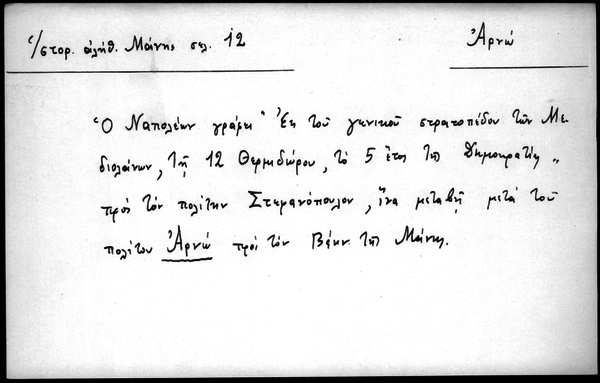 Ἱστορ. ἀλήθ. Μάνης σελ. 12
Ἀρνώ
Ὁ Ναπολέων γράφει "Ἐκ τοῦ γενικοῦ στρατοπέδου τῶν Με-
διολάνων, τῇ 12 Θερμιδώρου, τὸ 5 ἔτος τῆς Δημοκρατίας"
πρὸς τὸν πολίτην Στεφανόπουλον, ἵνα μεταβῇ μετὰ τοῦ
πολίτου Ἀρνώ πρὸς τὸν Βέην τῆς Μάνης.